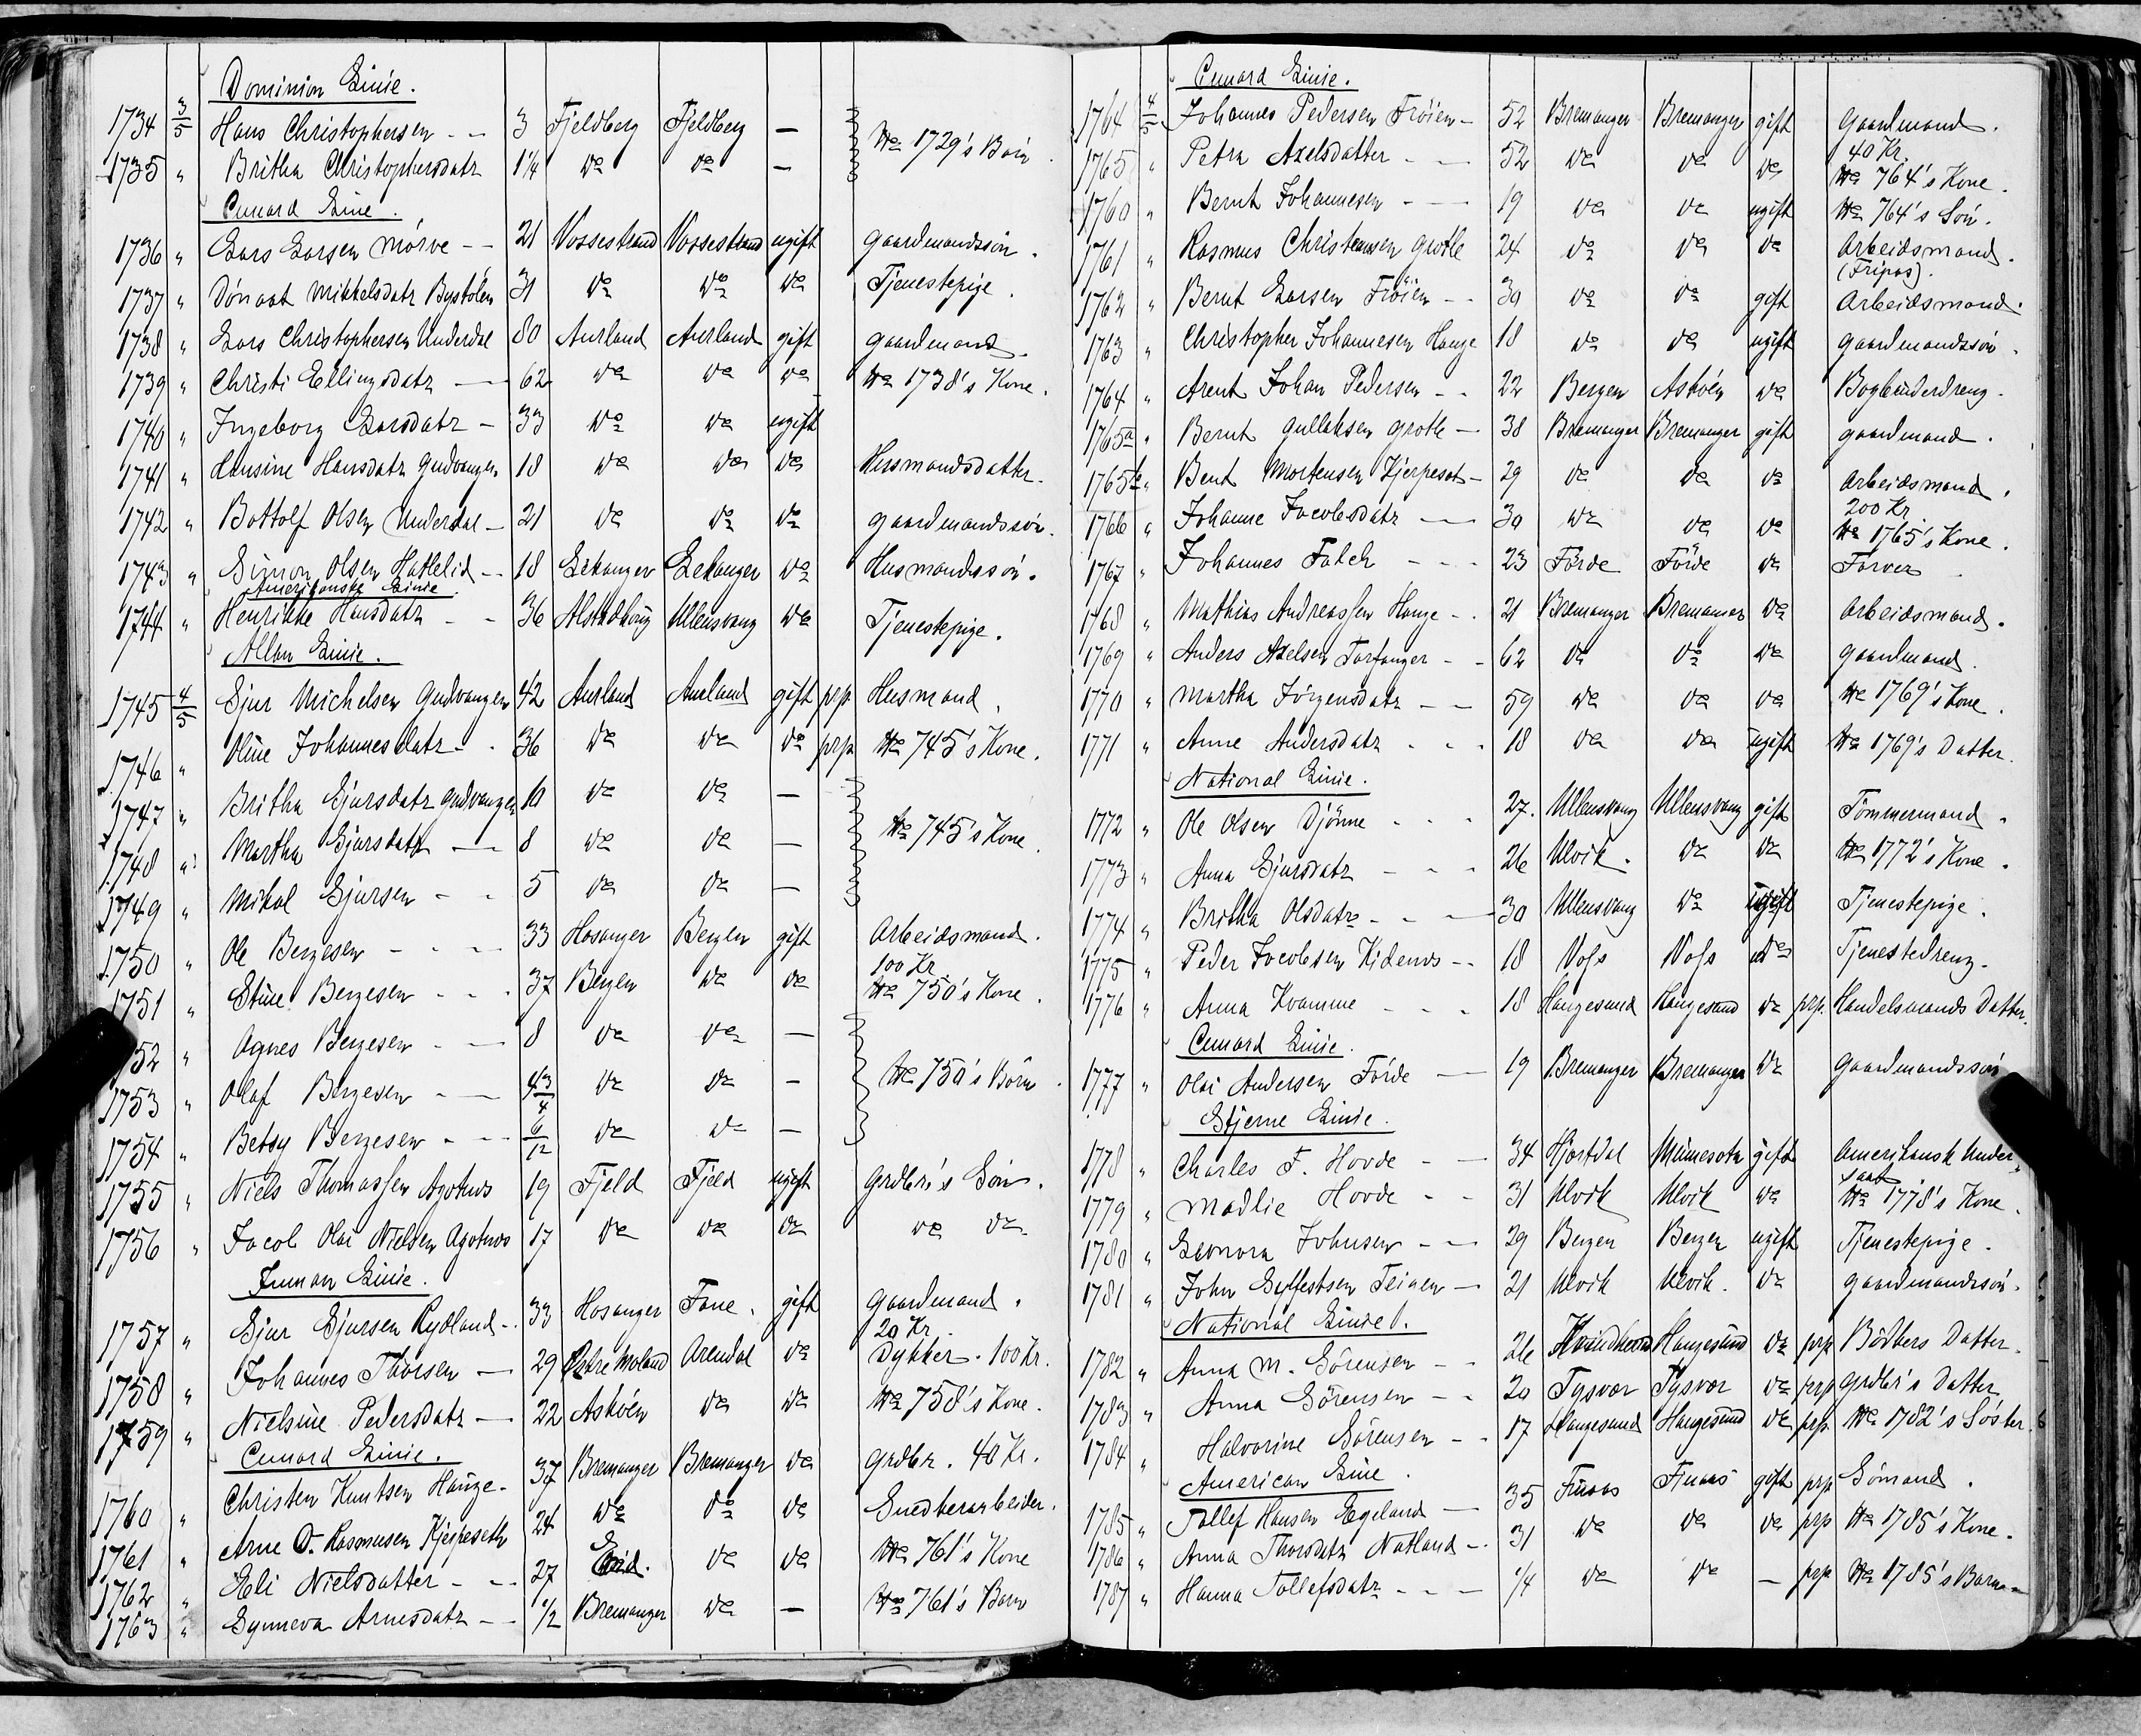 Dominion Linie.
1734 3/5 Hans Christophersen - - 3 Fjeldberg Fjeldberg - No 1729's Børn.
1735 " Britha Christophersdatr 1¼ do do -
Cunard Linie.
1736 " Lars Larsen Mørve - - 21 Vossestrand Vossestrand ugift Gaardmandssøn.
1737 " Mikkelsdatr Bystölen 31 do do do Tjenestepige.
1738 " Lars Christophersen Underdal 80 Aurland Aurland gift Gaardmand.
1739 " Christi Ellingsdatr - 62 do do do No 1738's Kone.
1740 " Ingeborg Larsdatr - 33 do do ugift
1741 " Hansine Hansdatr Gudvangen 18 do do do Husmandsdatter.
1742 " Bottolf Olsen Underdal - 21 do do do Gaardmandssøn.
1743 " Simon Olsen Hatlelid - - 18 Lekanger Lekanger do Husmandssøn.
Amerikanske Linie.
1744 " Henrikke Hansdatr - - 36 Alstadhoug Ullensvang do Tjenestepige.
Allan Linie.
1745 4/5 Sjur Michelsen Gudvangen 42 Aurland Aurland gift prp Husmand.
1746 " Oline Johannesdatr - . 36 do do do prp No 745's Kone.
1747 " Britha Sjursdatr Gudvangen 10 do do -
1748 " Martha Sjursdatr - 8 do do - No 745's Kone.
1749 " Mikal Sjursen - . 5 do do -
1750 " Ole Bergesen - - - 33 Hosanger Bergen gift Arbeidsmand.
100 Kr
1751 " Stine Bergesen - . . 37 Bergen do do No 750's Kone.
1752 " Agnes Bergesen - - 8 do do -
1753 " Olaf Bergesen - - 4¾ do do - No 750's Børn.
1754 " Betsy Bergesen - - - 6/12 do do -
1755 " Niels Thomassen Agotnes 19 Fjeld Fjeld ugift Grdbr's Søn.
1756 " Jacob Olai Nielsen Agotnes 17 do do do do do
Inman Linie.
1757 " Sjur Sjursen Rydland - . 33 Hosanger Fane. gift Gaardmand.
20 Kr.
1758 " Johannes Thorsen - 29 Østre Moland Arendal do Dykker. 100 Kr.
1759 " Nielsine Pedersdatr - 22 Askøen do do No 758's Kone.
Cunard Linie.
1760 " Christen Knutsen Hauge - 37 Bremanger Bremanger do Grdbr. 40 Kr.
1761 " Arne O. Rasmusen Kjerpeseth 24 do do do Snedkerarbeider.
1762 " Eli Nielsdatter - - - 27 Eid. do do No 761's Kone
1763 " Synneva Arnesdatr - - ½ Bremanger do - No 761's Barn
Cunard Linie.
1764 4/5 Johannes Pedersen Frøien - 52 Bremanger Bremanger gift Gaardmand.
40 Kr.
1765 " Petra Axelsdatter - - 52 do do do No 764's Kone.
1760 " Bernt Johannesen - - 19 do do ugift No 764's Søn.
1761 " Rasmus Christensen Grotle 24 do do do Arbeidsmand.
(Fripas).
1762 " Bernt Larsen Frøien - - 30 do do gift Arbeidsmand.
1763 " Christopher Johannesen Hauge 18 do do ugift Gaardmandssøn.
1764 " Arent Johan Pedersen - - 22 Bergen Askøen do Bogbinderdreng.
1765a " Bernt Gullaksen Grotle - 38 Bremanger Bremanger gift Gaardmand.
1765b " Bent Mortensen Kjerpeset - 29 do do do Arbeidsmand.
200 Kr
1766 " Johanne Jacobsdatr - 30 do do do No 1765's Kone.
1767 " Johannes Falch - - - 23 Førde Førde do Farver
1768 " Mathias Andreassen Hauge - . 21 Bremanger Bremanger do Arbeidsmand.
1769 " Anders Axelsen Torfanger - - 62 do do do Gaardmand.
1770 " Martha Jørgensdatr - - 59 do do do No 1769's Kone.
1771 " Anne Andersdatr . . . 18 do do ugift No 1769's Datter.
National Linie.
1772 " Ole Olsen Djönne . . . 27. Ullensvang Ullensvang gift Tömmermand.
1773 " Anna Sjursdatr - - . 26 Ulvik. do do No 1772's Kone.
1774 " Britha Olsdatr - . - 30 Ullensvang do ugift Tjenestepige.
1775 " Peder Jacobsen Kidenes - - 18 Voss Voss do Tjenestedreng.
1776 " Anna Kvamme - - . 18 Haugesund Haugesund do prp. Handelsmands Datter.
Cunard Linie.
1777 " Olai Andersen Førde - 19 Bremanger Bremanger do Gaardmandssøn
Stjerne Linie.
1778 " Charles F. Hovde - - 34 Hjartdal Minnesota gift Amerikansk Under-
saat
1779 " Madlie Hovde - - 31 Ulvik Ulvik do No 1778's Kone.
1780 " Leonora Johnsen - - 29 Bergen Bergen ugift Tjenestepige.
1781 " John Sylfestsen Teigen - 21 Ulvik Ulvik. do Gaardmandssøn.
National Linie.
1782 " Anna M. Sörensen - - 26 Haugesund do prp Bödkers Datter.
1783 " Anna Sörensen - - 20 Tysvær Tysvær do prp Grdbr's Datter.
1784 " Halvorine Sörensen - - 17 Haugesund Haugesund do prp. No 1782's Søster.
American Linie.
1785 " Tollef Hansen Egeland - 35 Finaas Finaas gift prp Sömand.
1786 " Anna Thorsdatr Natland - . 31 do do do prp No 1785's Kone.
1787 " Hanna Tollefsdatr - - - ¼ do do - prp No 1785's Barn.